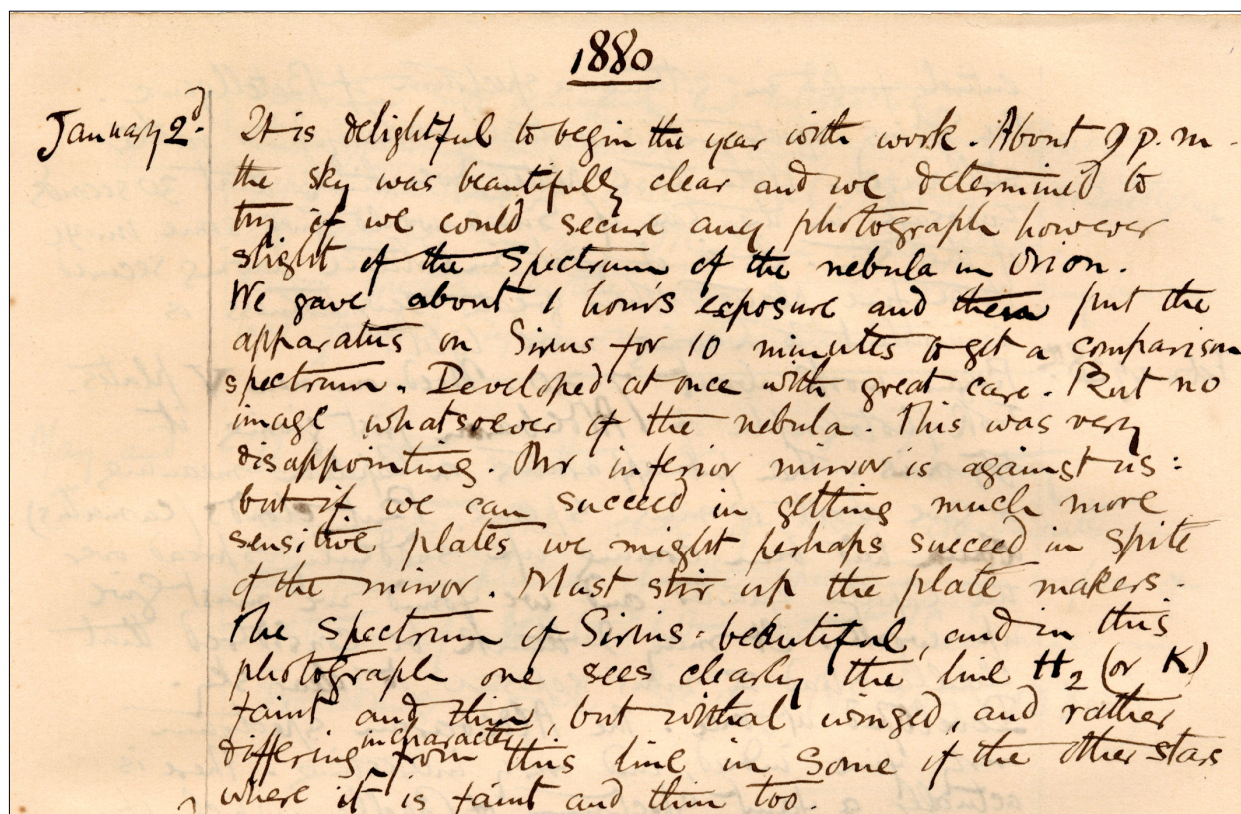 1880
January 2d. It is delightful to begin the year with work. About 9 p.m.
the sky was beautifully clear and we determined to
try if we could secure any photograph however
slight of the spectrum of the nebula in Orion.
We gave about 1 hour's exposure and then put the
apparatus on Sirius for 10 minutes to get a comparison
spectrum. Developed at once with great care. But no
image whatsoever of the nebula. This was very
disappointing. Our inferior mirror is against us:
but if we can succeed in getting much more
sensitive plates we might perhaps succeed in spite
of the mirror. Must stir up the plate makers.
The spectrum of Sirius beautiful, and in this
photograph one sees clearly the line H2 (or K)
faint and thin, but withal winged, and rather
differing in character from this line in some of the other stars
where it is faint and thin too.